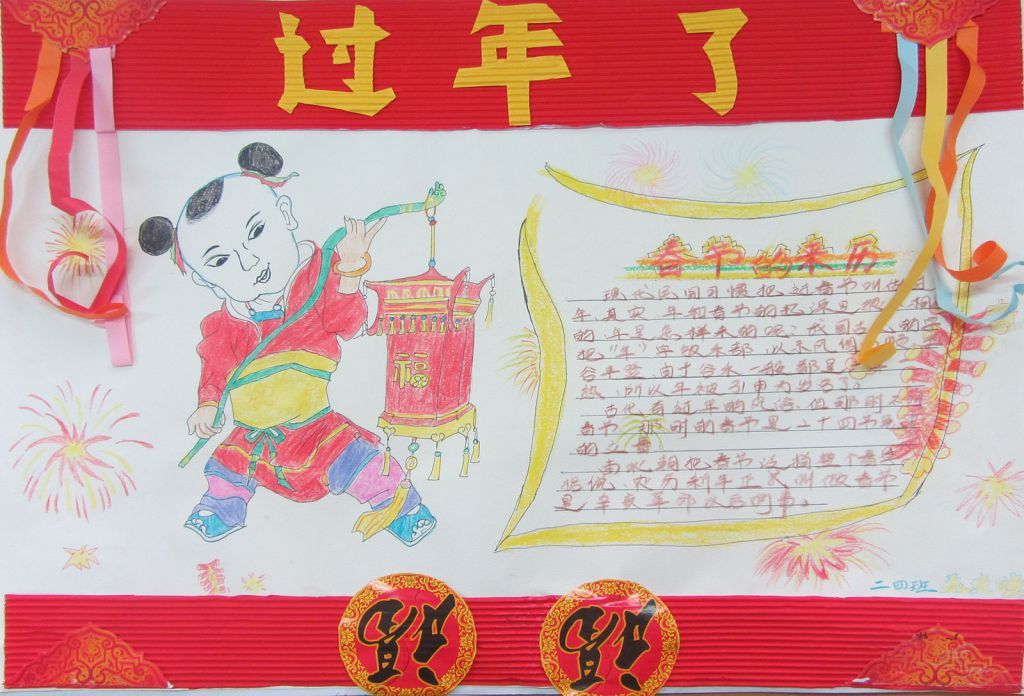 过年了
春节的来历
现代民间习惯把过春节叫做过
年,其实,年和春节的
的,年是怎样来的呢?我国古
把"年"字放禾部,以禾风
谷年。由于谷禾一般都是
熟,所以年被引申为岁名了。
古代有过年的风俗,但那时不
春节,那时的春节是二十四节气
的立春
南北朝把春节
农历初年正式叫做春节
是辛亥革命以后的事。
福
二四班
福
福